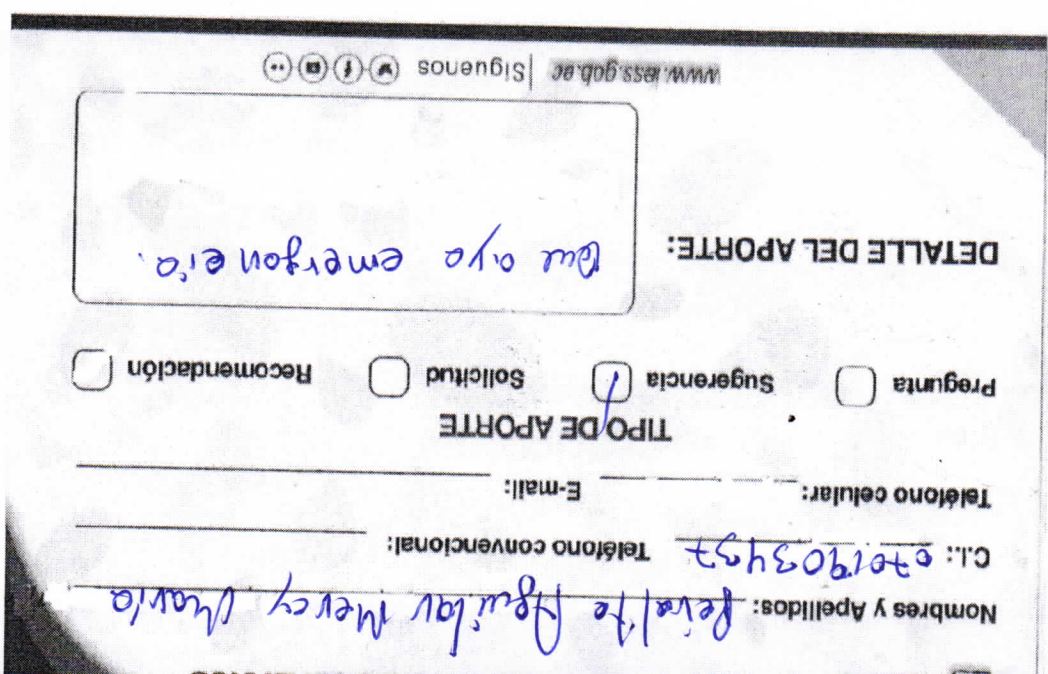 Nombres y Apellidos: Peralte Aguilar Mercy María
C.I.: 0701903437 Teléfono convencional:
Teléfono celular: E-mail:
TIPO DE APORTE
Pregunta Sugerencia Solicitud Recomendación
DETALLE DEL APORTE: Que aya emergencia.
www.iess.gob.ec | Síguenos